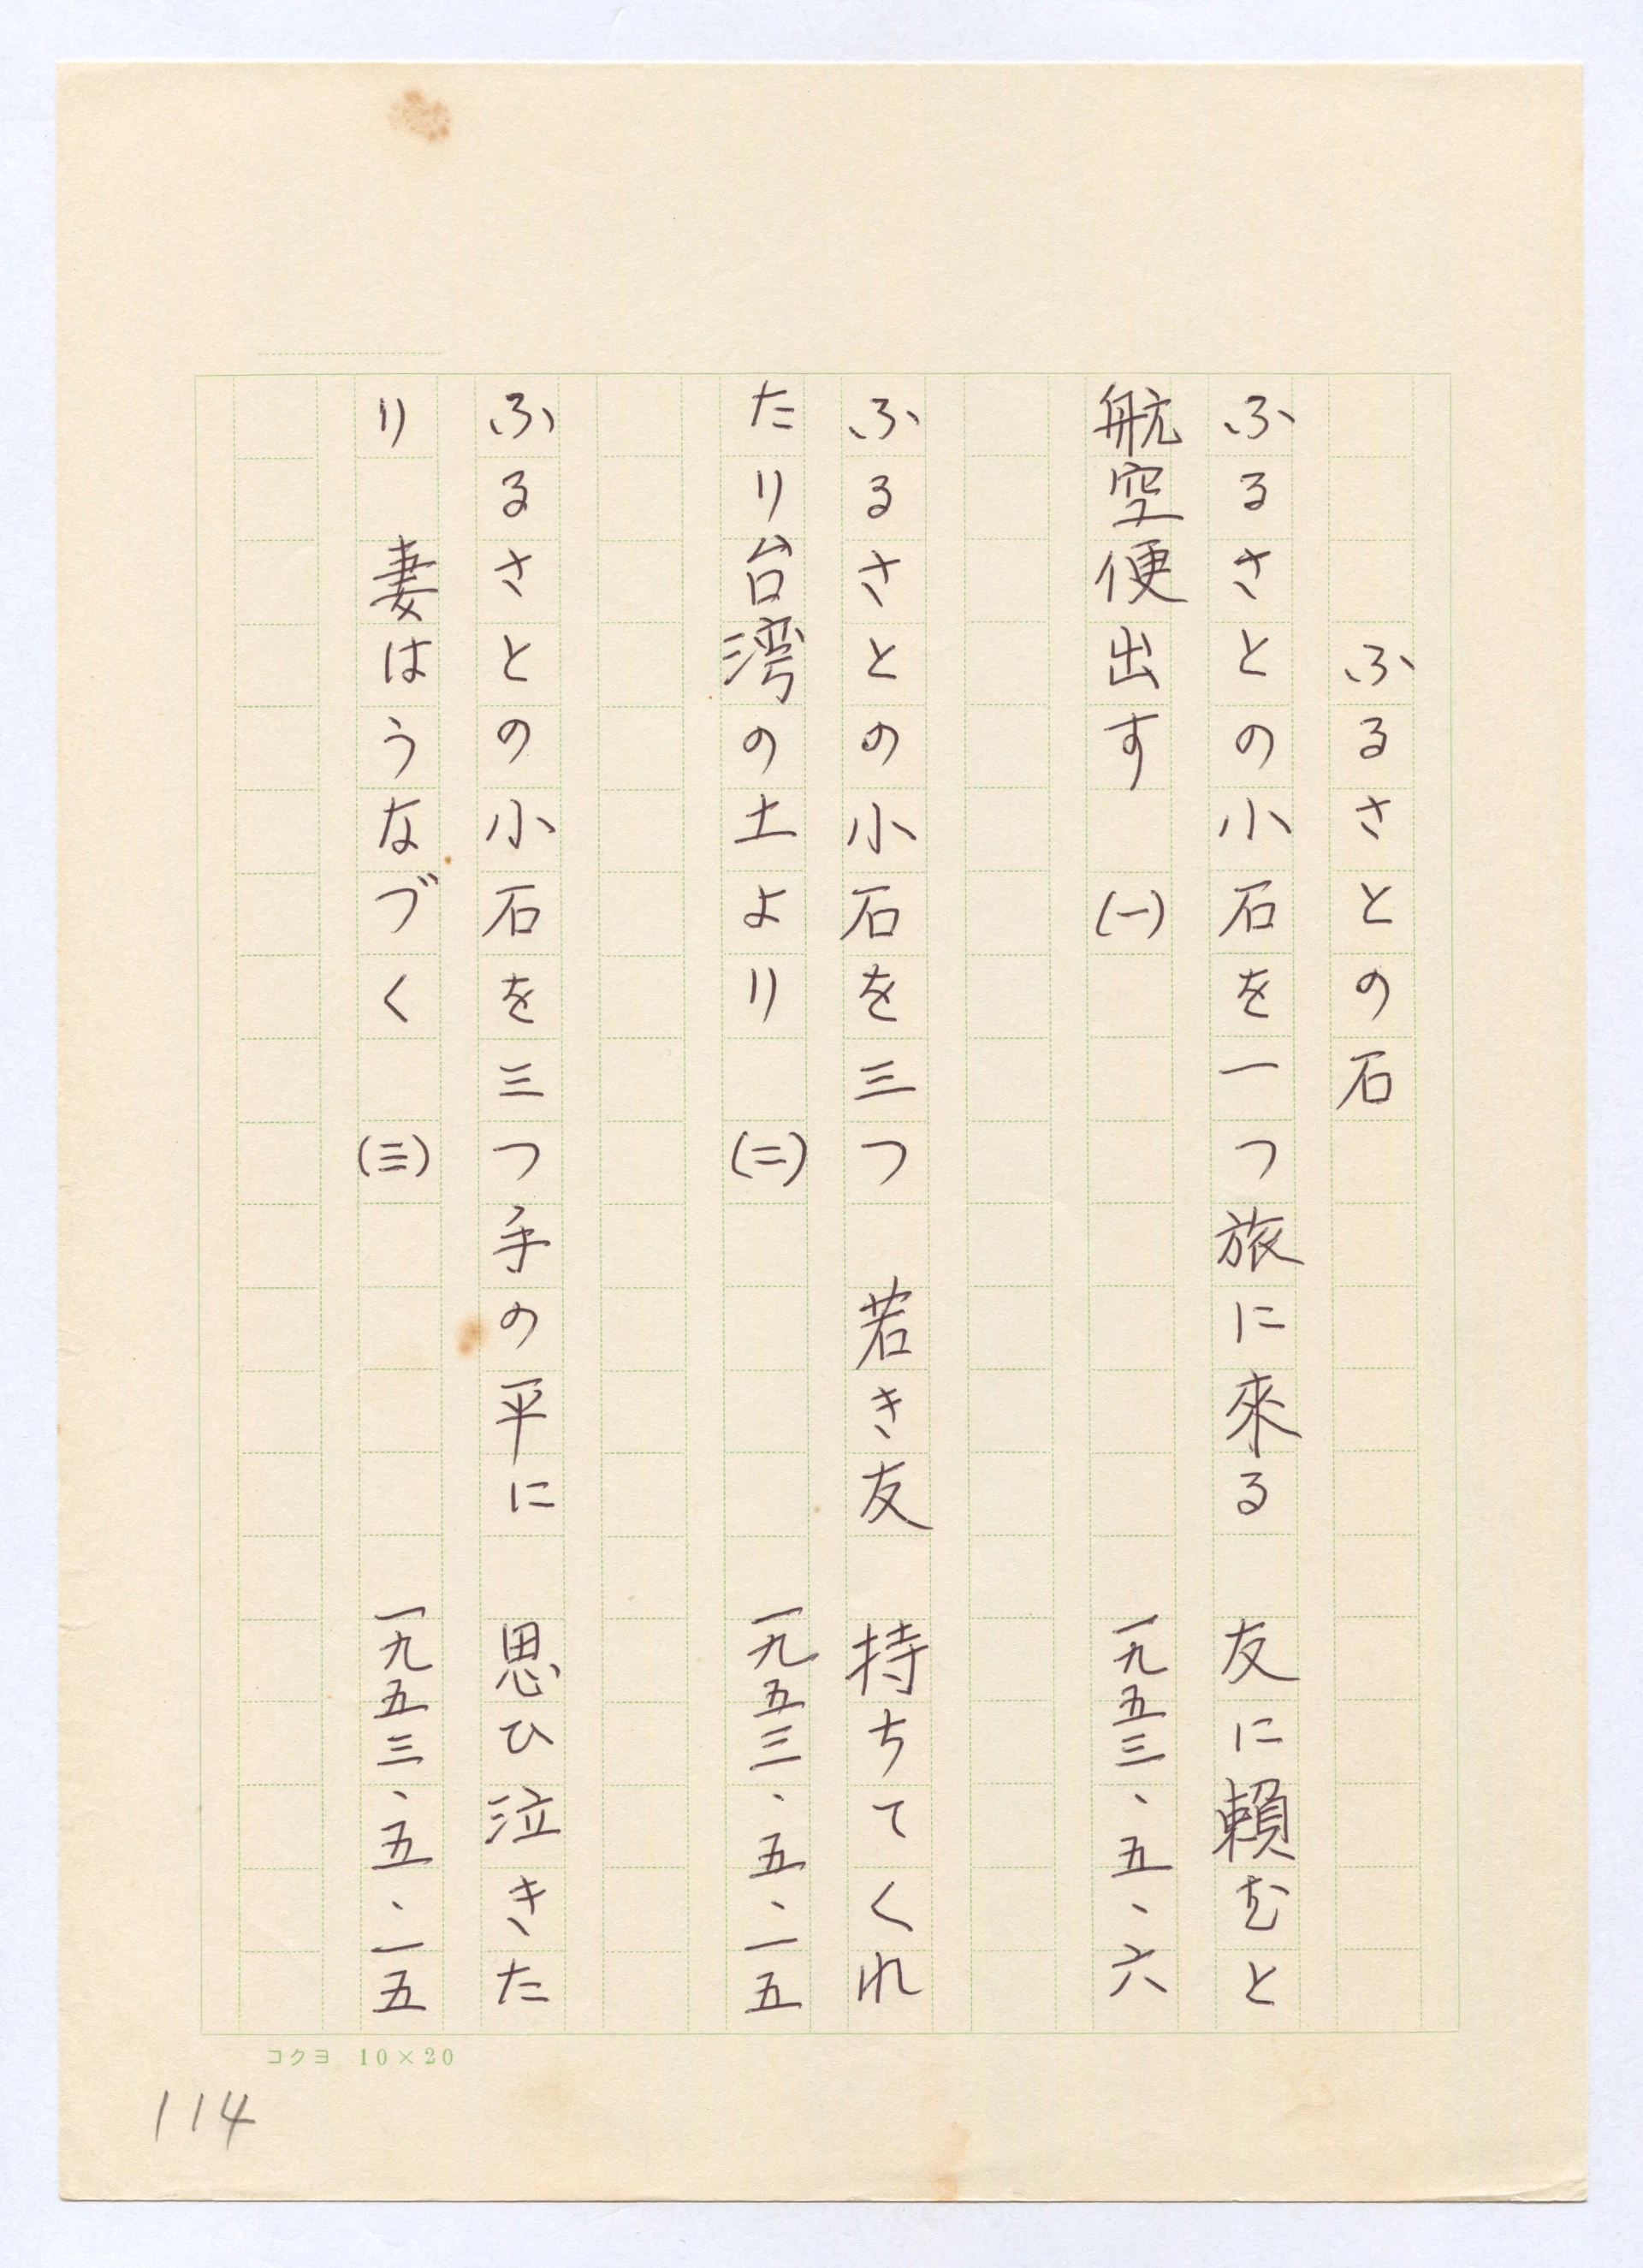 ふるさとの石
ふるさとの小石を一つ旅に來る　友に賴むと
航空便出す　(一)　一九五三、五、六
ふるさとの小石を三つ　若き友　持ちてくれ
たり台湾の土より　(二)　一九五三、五、一五
ふるさとの小石を三つ手の平に　思ひ泣きた
り　妻はうなづく　(三)　一九五三、五、一五
コクヨ　10×20
114